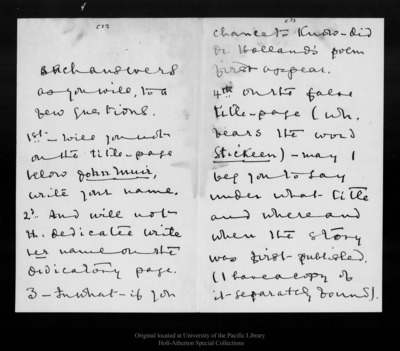 such answers
as you will, to a
few questions.
1st - Will you not
on the title-page
below John Muir,
write your name.
2d. And will not
th. dedicatee write
her name on the
dedicatory page.
3 - In what - if you
chance to know - did
Dr Holland's poem
first appear.
4th on the false
title-page (wh.
bears the word
Stickeen) - may I
beg you to say
under what title
and where and
when the story
was first-published.
(I have a copy of
it - separately bound).
Original located at University of the Pacific Library
Holt-Atherton Special Collections